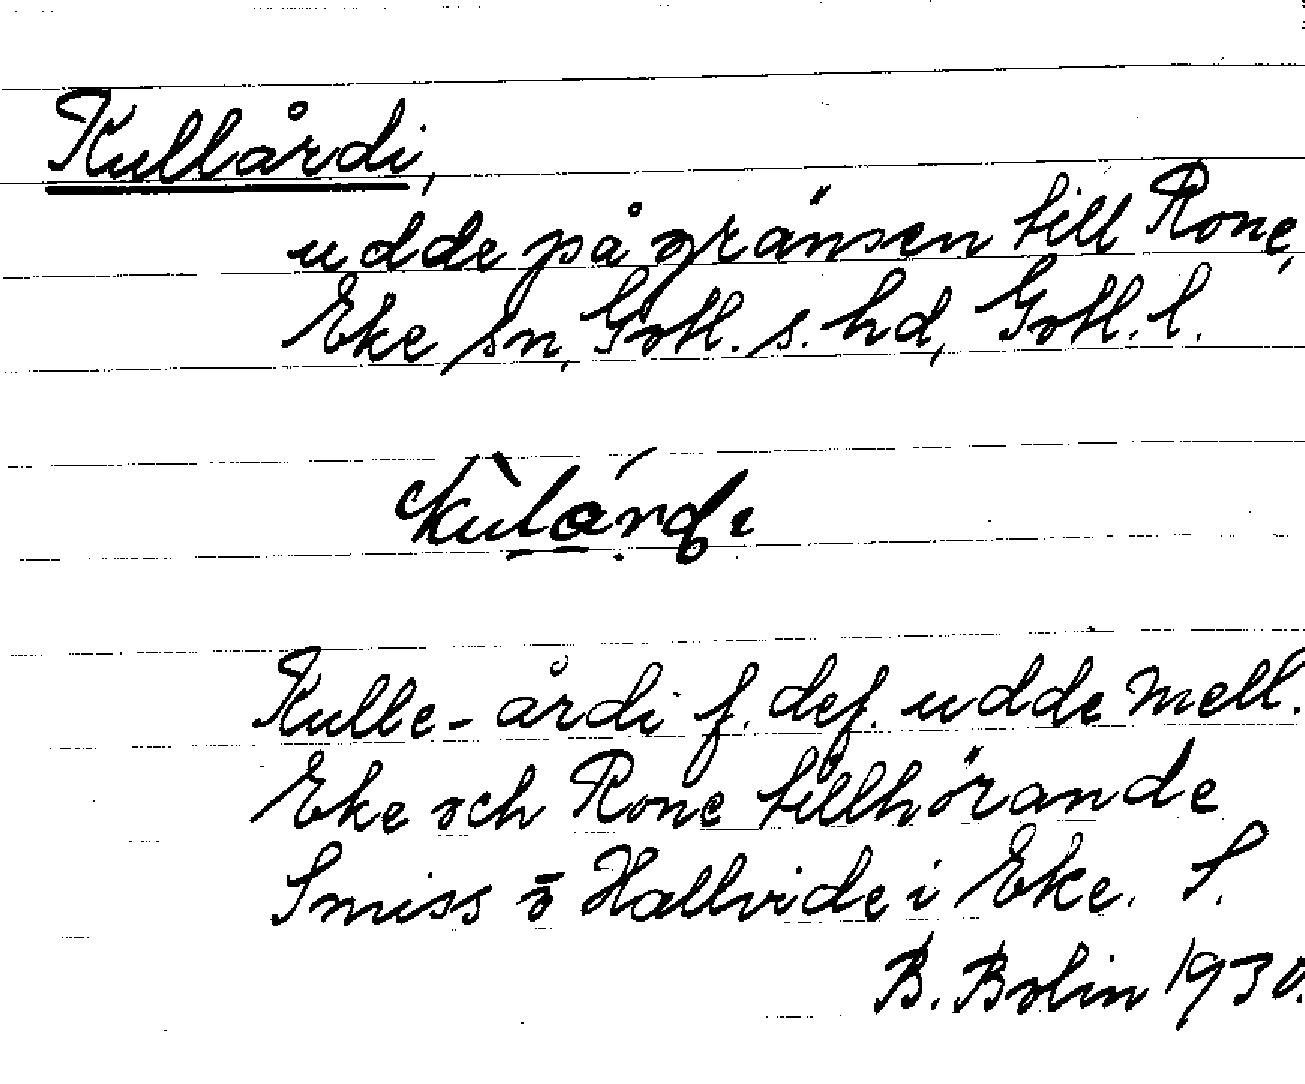 Kullårdi,
udde på gränsen till Rone,
Eke sn, Gotl. s. hd, Gotl. l.
Kulle-årdi f. def. udde mell.
Eke och Rone tillhörande
Smiss o Hallvide i Eke. S.
B. Bolin 1930.